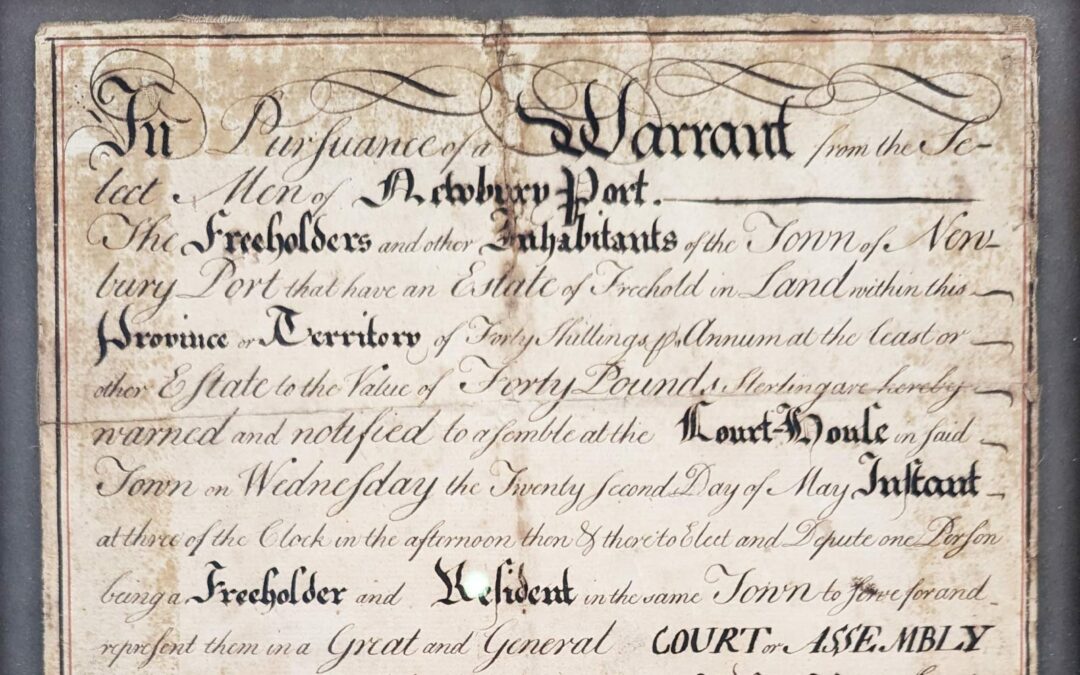 In Pursuance of a Warrant from the Se-
lect Men of Newbury Port.
The Freeholders and other Inhabitants of the Town of New-
bury Port that have an Estate of Freehold in Land within this
Province or Territory of Forty Shillings p. Annum at the least or
other Estate to the Value of Forty Pounds Sterling are hereby
warned and notified to assemble at the Court-House in said
Town on Wednesday the Twenty second Day of May Instant
at three of the Clock in the afternoon then & there to Elect and Depute one Person
being a Freeholder and Resident in the same Town to serve for and
represent them in a Great and General COURT or ASSEMBLY